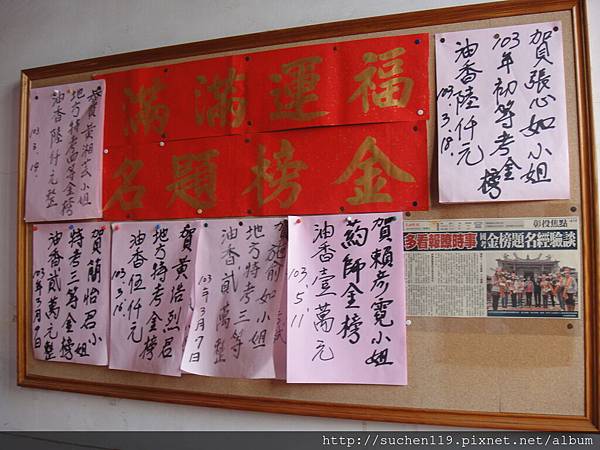 福運滿滿
金榜題名
賀張心如小姐
103年初等考金榜
油香陸仟元
103.3.18.
恭賀黃湘芸小姐
地方特考四等金榜
油香陸仟元整
賀蘭怡君小姐
特考三等金榜
油香貳萬元整
103年3月9日
賀黃浩烈君
地方特考金榜
油香伍仟元
103.3.16.
賀施前如小姐
地方特考三等
油香貳萬整
103年3月9日
賀賴彥霓小姐
藥師金榜
油香壹萬元
103.5.11
彰投焦點
多看報瞭時事
金榜題名經驗談
http://suchen119.pixnet.net/album